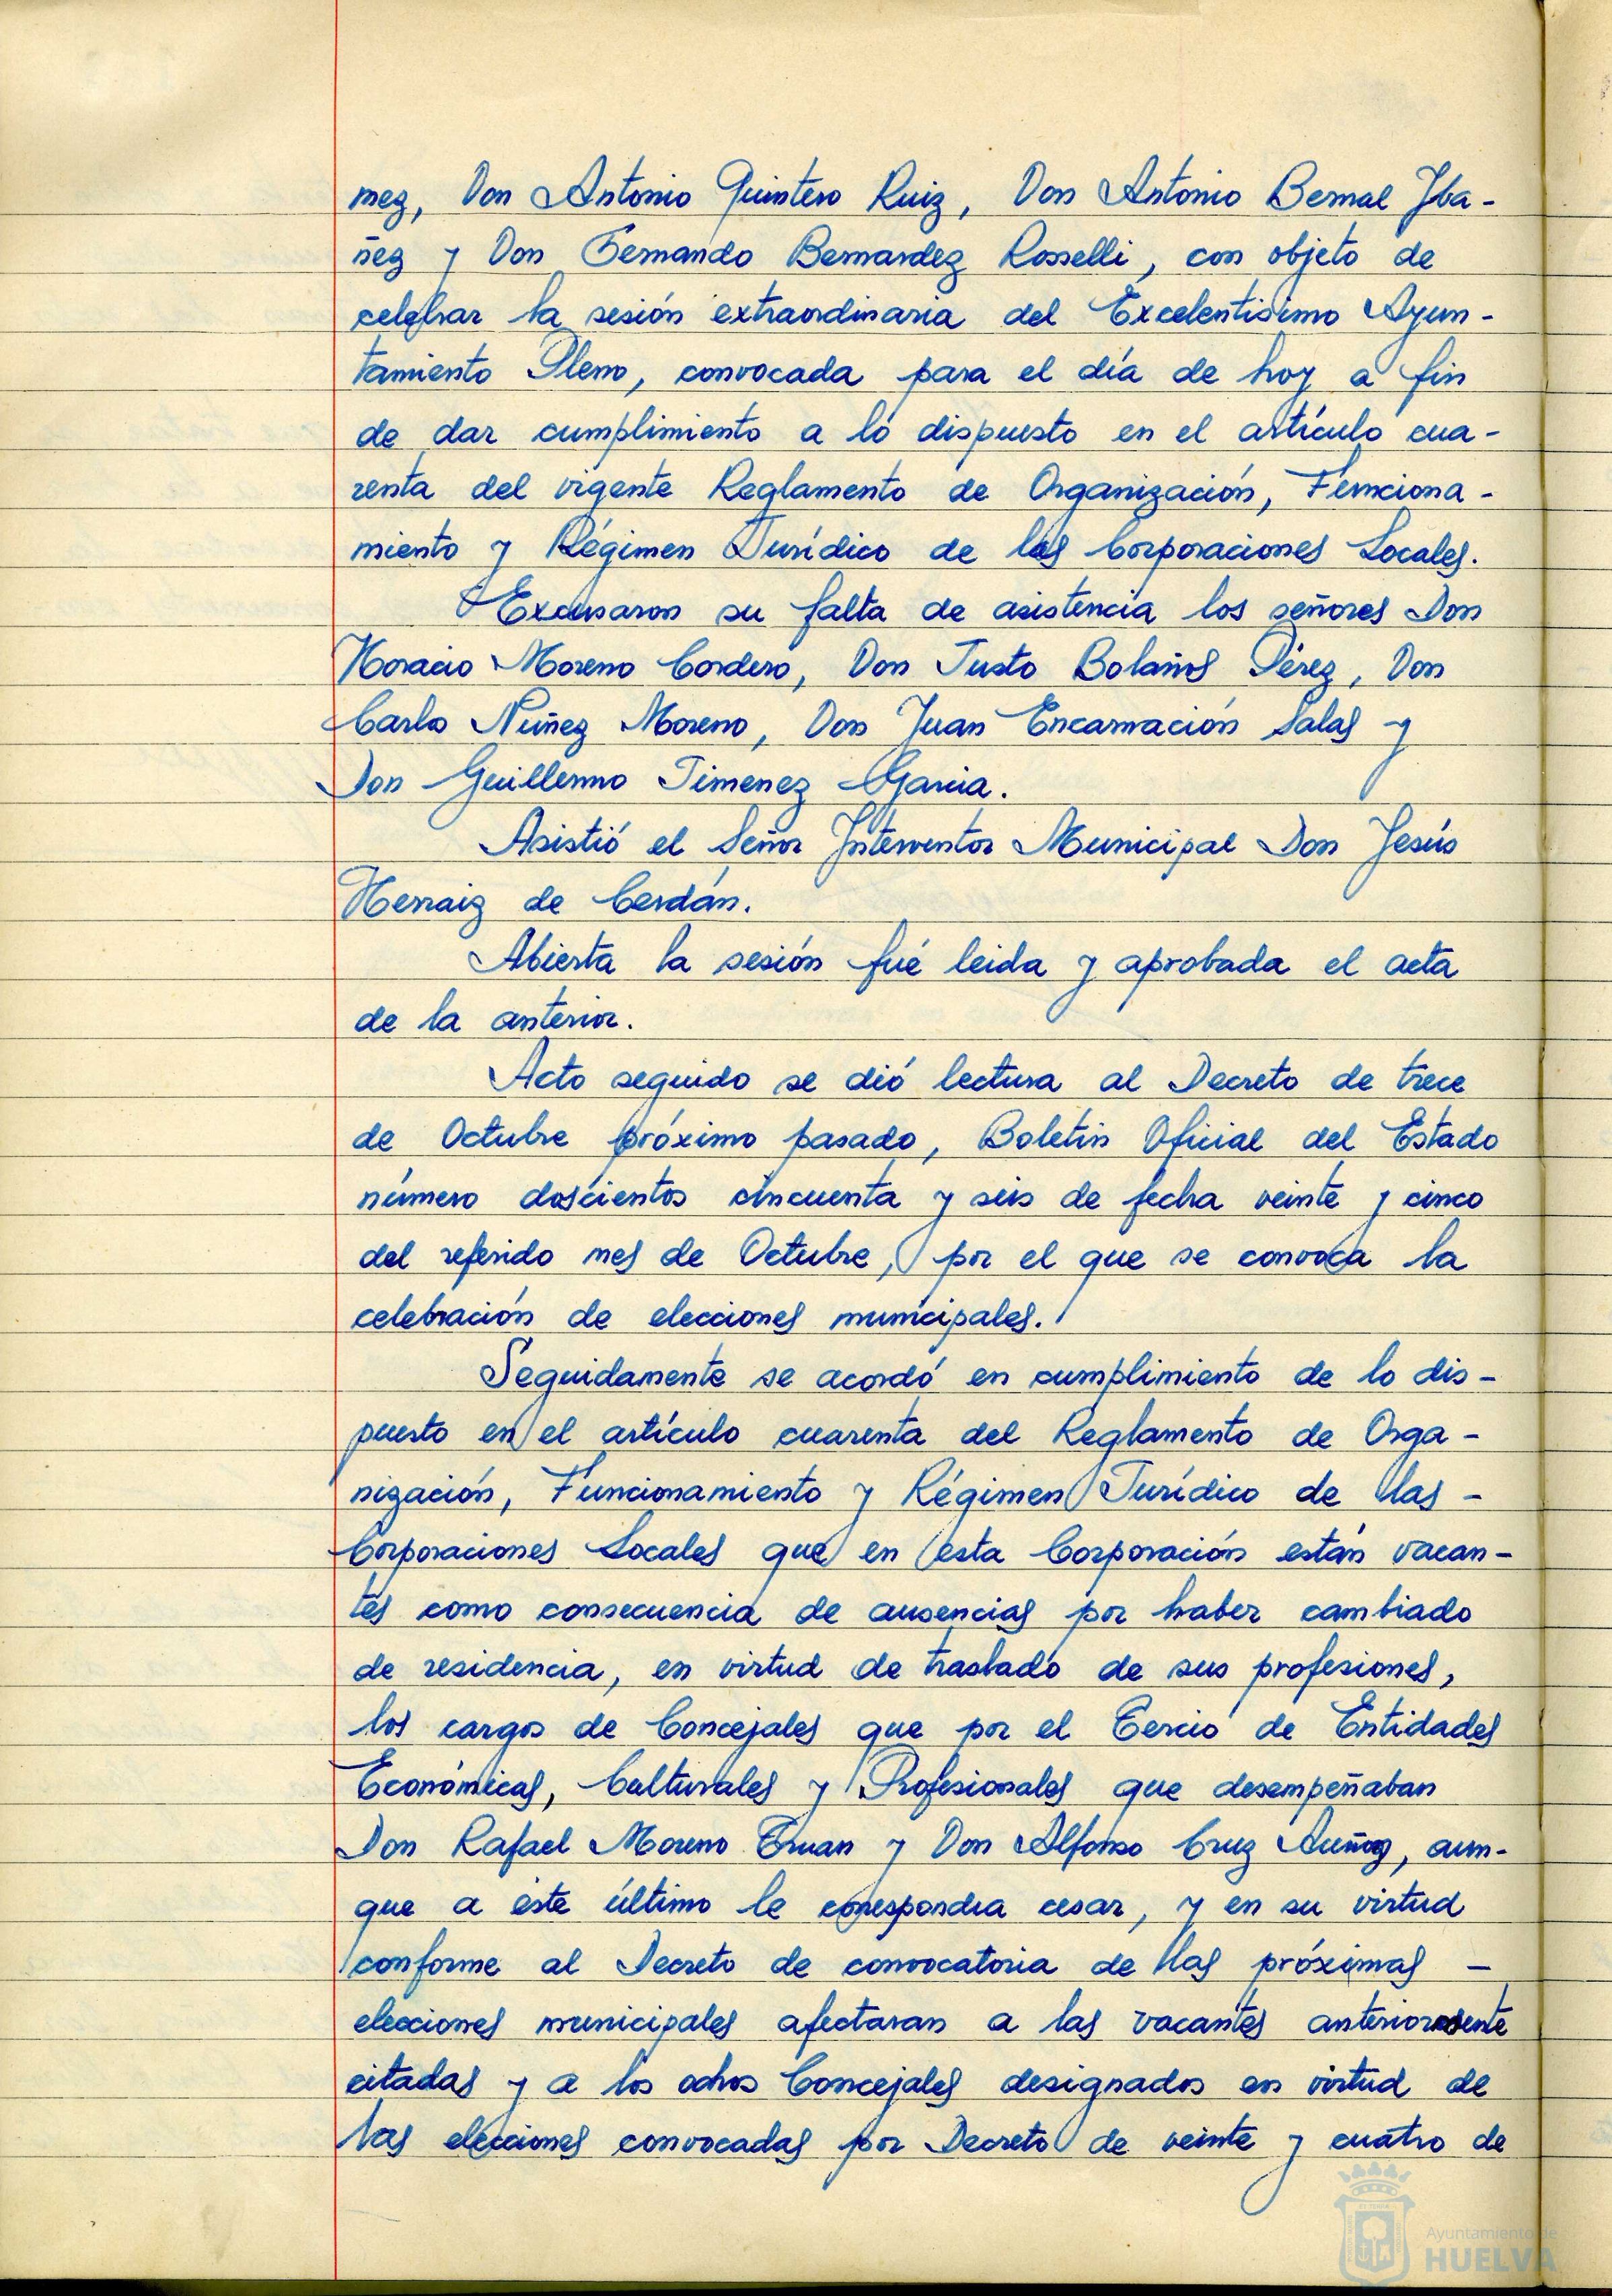 mez, Don Antonio Quintero Ruiz, Don Antonio Bernal Yba-
ñez y Don Fernando Bernardez Rosselli, con objeto de
celebrar la sesión extraordinaria del Excelentisimo Ayun-
tamiento Pleno, convocada para el día de hoy a fin
de dar cumplimiento a lo dispuesto en el artículo cua-
renta del vigente Reglamento de Organización, Funciona-
miento y Régimen Jurídico de las Corporaciones Locales.
Excusaron su falta de asistencia los señores Don
Horacio Moreno Cordero, Don Justo Bolaños Pérez, Don
Carlos Núñez Moreno, Don Juan Encarnación Salas y
Don Guillermo Jimenez Garcia.
Asistió el Señor Interventor Municipal Don Jesús
Herraiz de Cerdán.
Abierta la sesión fué leida y aprobada el acta
de la anterior.
Acto seguido se dió lectura al Decreto de trece
de Octubre próximo pasado, Boletín Oficial del Estado
número doscientos cincuenta y seis de fecha veinte y cinco
del referido mes de Octubre, por el que se convoca la
celebración de elecciones municipales.
Seguidamente se acordó en cumplimiento de lo dis-
puesto en el artículo cuarenta del Reglamento de Orga-
nización, Funcionamiento y Régimen Jurídico de las -
Corporaciones Locales que en esta Corporación están vacan-
tes como consecuencia de ausencias por haber cambiado
de residencia, en virtud de traslado de sus profesiones,
los cargos de Concejales que por el Tercio de Entidades
Económicas, Culturales y Profesionales que desempeñaban
Don Rafael Moreno Truan y Don Alfonso Cruz, aun-
que a éste último le correspondia cesar, y en su virtud
conforme al Decreto de convocatoria de las próximas -
elecciones municipales afectaran a las vacantes anteriormente
citadas y a los ochos Concejales designados en virtud de
las elecciones convocadas por Decreto de veinte y cuatro de
Ayuntamiento de
HUELVA